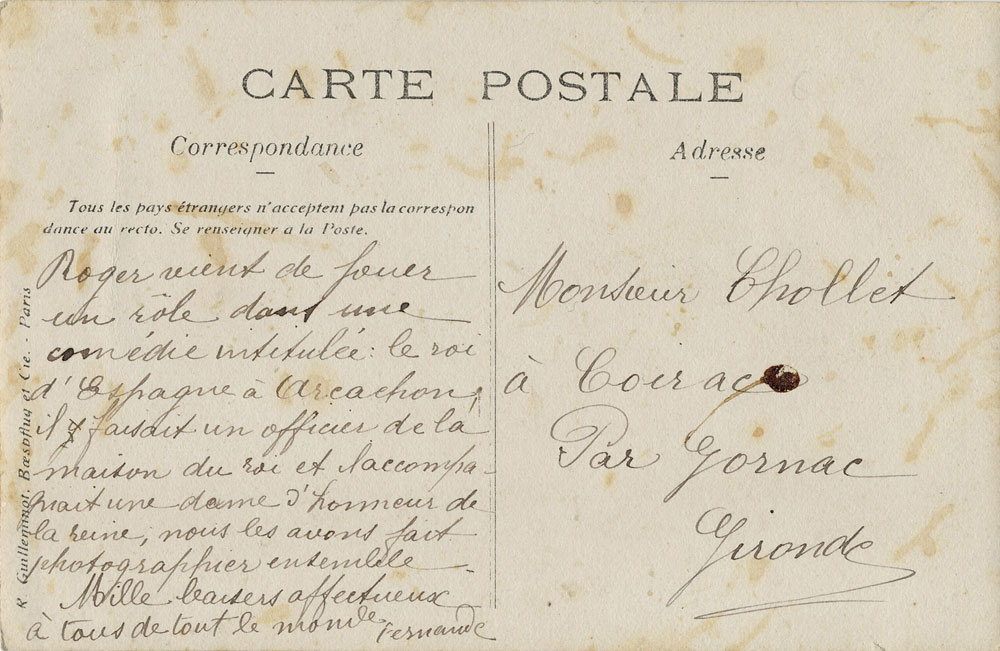 CARTE POSTALE
Correspondance
Tous les pays étrangers n'acceptent pas la correspon
dance au recto. Se renseigner a la Poste.
Roger vient de jouer
un rôle dans une
comédie intitulée: le roi
d'Espagne à Arcachon,
il y faisait un officier de la
maison du roi et accompa-
gnait une dame d'honneur de
la reine, nous les avons fait
photographier ensemble.
Mille baisers affectueux
à tous de tout le monde
Fernande
R. Guilleminot, Bœspflug et Cie. - Paris
Adresse
Monsieur Chollet
à Coirac
Par Gornac
Gironde